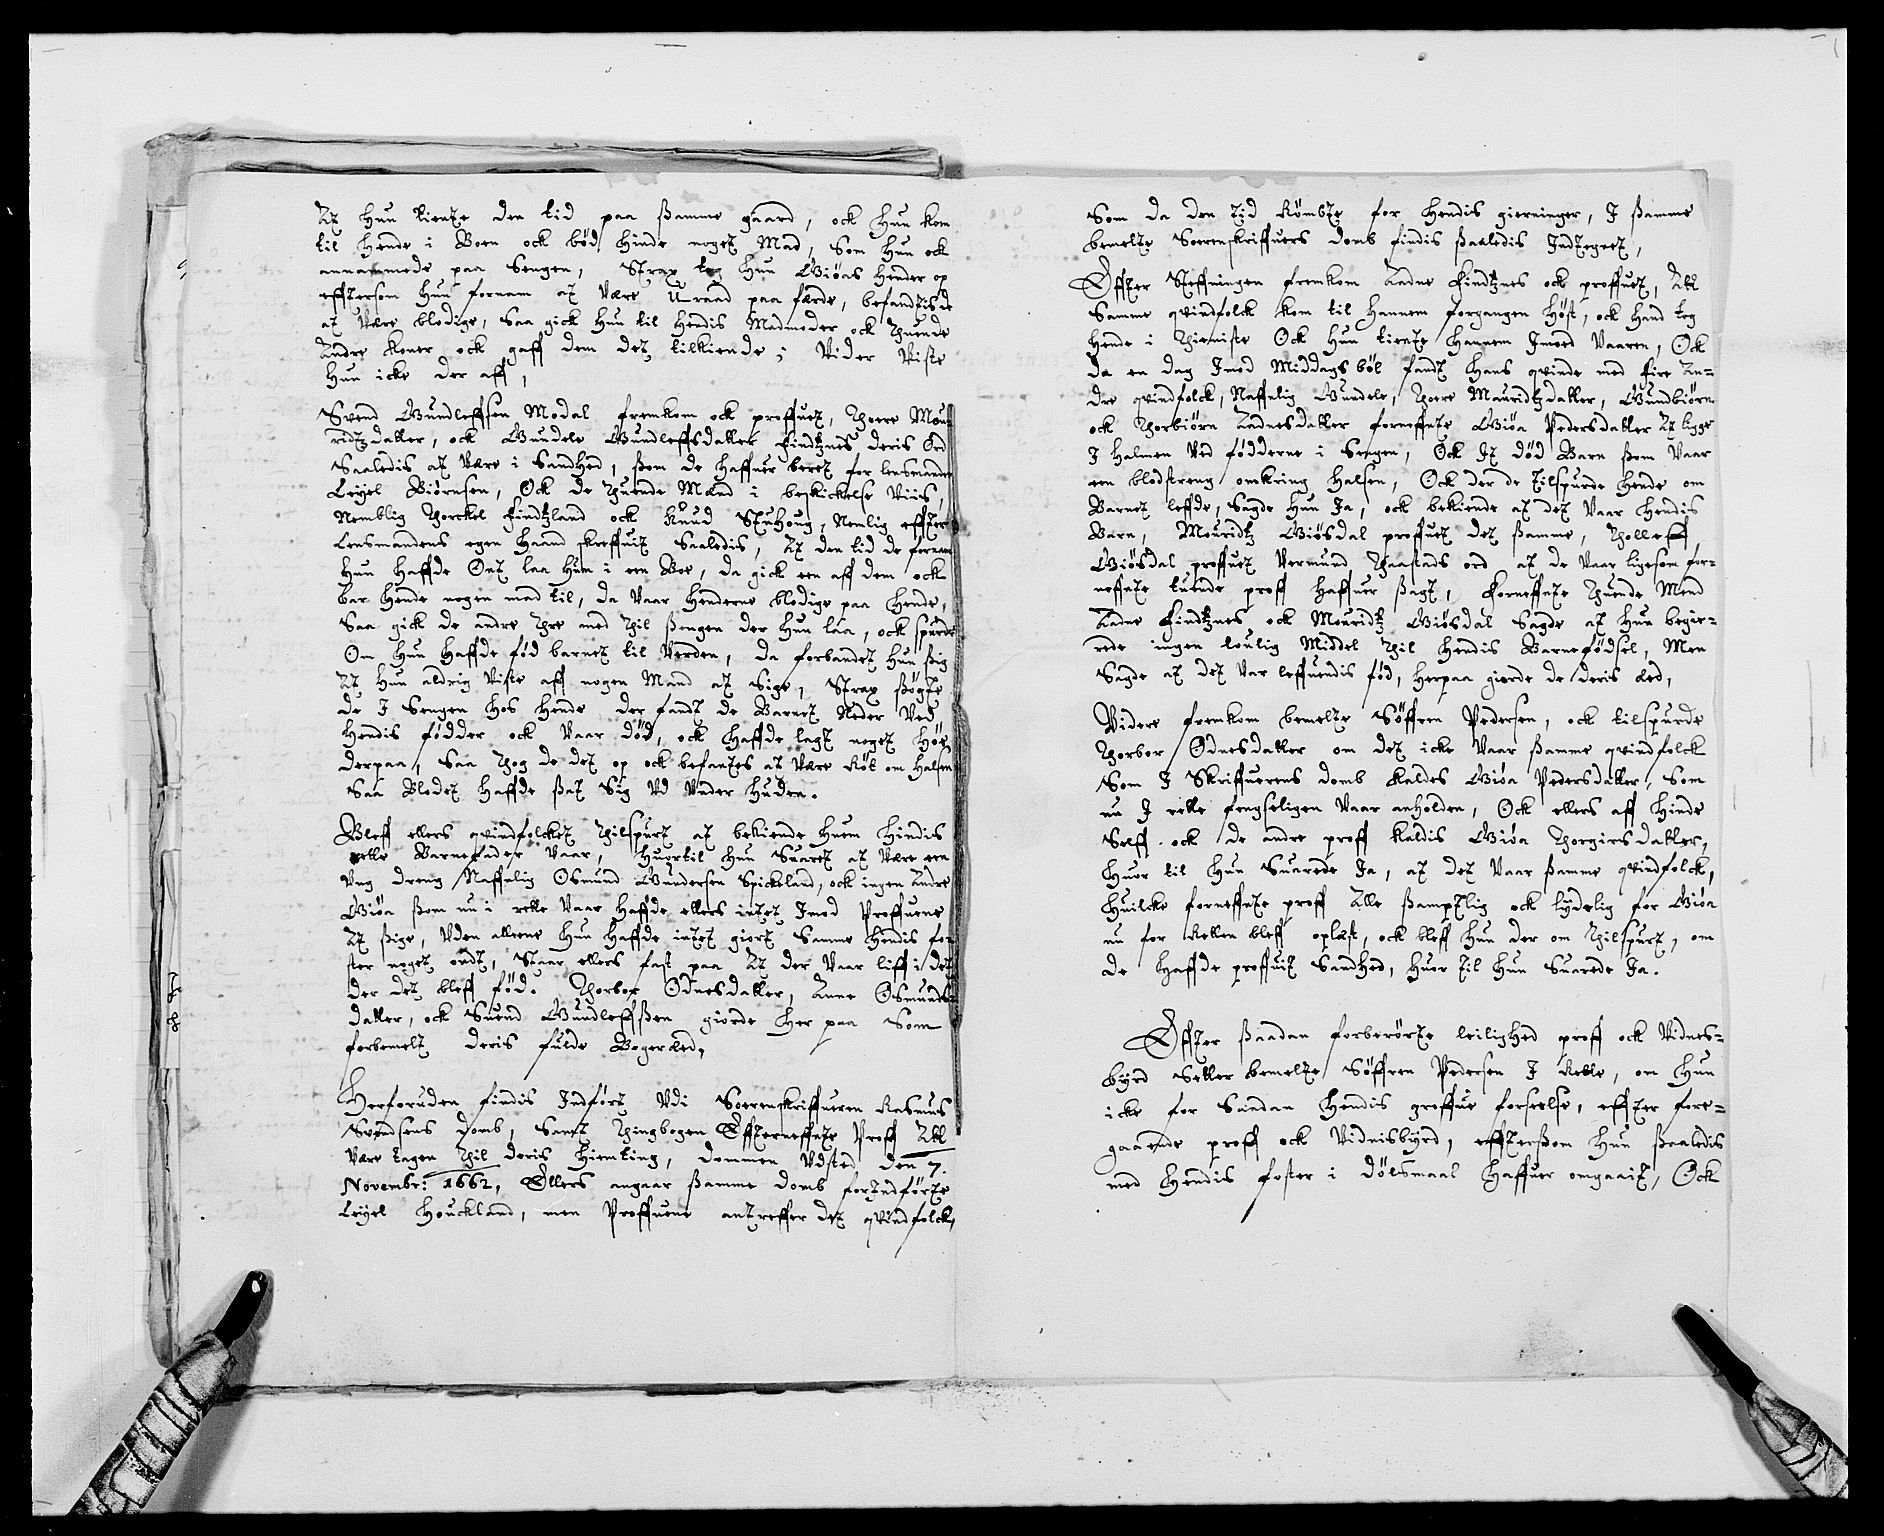 At hun tiente den tid paa samme gaard, ock hun kom
til hende i Boen ock bød hinde noget Mad, som hun ock
annammede paa Sengen, Strax tog hun Giøas hender op
effttersom hun fornam at være U-raad paa færde, befandtis de
at være blodige, saa gick hun til hendis Madmoder ock thuende
Andre koner ock gaff dem det tilkiende, Vider Viste
hun icke der aff,
Svend Gundleffsen Modal fremkom ock proffuet, Thore Mou-
ridtzdatter, ock Gundele Gundleffsdatter Findtznes deris Ord
Saaledis at være i Sandhed, som de haffuer beret for lensmanden
Leyel Biørnsen, Ock de thuende Mænd i beskickelse Viis,
Nemblig Thorckel Findtzland ock Knud Stuhoug, Nemlig effter
Lensmandens egen haand skreffuit Saaledis, At den tid de fornam
hun haffde Ont laa hun i een Boe, da gick een aff dem ock
bar hende nogen mad til, da vaar henderne blodige paa hende,
Saa gick de andre thre med thil sengen der hun laa, ock spurde
Om hun haffde fød barnet til Verden, da forbandet hun sig
At hun aldrig Viste aff nogen Mand at Sige, Strax søgte
de J Sengen hos hende der fandt de Barnet Neder Ved
hendis fødder ock Vaar død, ock haffde lagt noget høe
derpaa, Saa thog de det op ock befantes at være Røt om halsen
Saa Blodet haffde sat sig Ud Under huden.
Bleff ellers qvindfolcket thilspurt at bekiende huem hindis
rette Barnefader Vaar, huortil hun Suaret at være een
Ung dreng Naffnlig Osmund Gundersen Spickeland, ock ingen Andre
Giøa som nu i rette Vaar haffde ellers intet Jmod Proffuene
At sige, Uden alleene hun haffde intet giort Samme hendis fo-
ster noget ondt, Staar ellers fast paa At der Vaar liff i det
der det bleff fød. Thorbor Odnesdatter, Anne Osmunds-
datter, ock Suend Gundleffssen giorde her paa som
forbemelt deris fulde Bogeræd,
Herforuden findis Jndført Udi Sorenskriffueren Rasmus
Svendsens domb, Sampt thingbogen Effterneffnte Proff At
Være tagen thil deris hiemting, dommen Udsted den 7.
Novembr: 1662, Ellers angaar samme domb forindførte
Leyel Houckland, men Proffuene antreffer det qvindfolck,
Som da den tid Rømbte for hendis gierninger, J samme
bemelte Sorenskriffuers domb findis saaledis Jndtegnet,
Effter Steffningen fremkom Aadne Findtznes ock proffuet, At
Samme qvindfolck kom til hannem forgangen høst, ock hand tog
hende i thieniste Ock hun tiente hannem Jmod Vaaren, Ock
da en dag Jmod Middags bøl fandt hans qvinde med fire An-
dre qvindfolck, Naffnlig Gundele, Thore Mauridtzdatter, Gundbiørn
ock Thorbiørn Aadnesdatter forneffnte Giøa Pedersdatter At ligge
J halmen Ved fødderne i Sengen, Ock It død Barn som Vaar
een blodstreng omkring halsen, Ock der de tilspurde hende om
Barnet leffde, Sagde hun Ja, ock bekiende at det Vaar hendis
Barn, Mouridtz Giøsdal proffuet det samme, Tholleff
Giøsdal proffuet Vermund Thaastads ord at de Vaar ligesom for-
neffnte tuende proff haffuer sagt, Forneffnte thuende Mend
Aadne Findtznes ock Mouridtz Giøsdal Sagde at hun begie-
rede ingen loulig Middel thil hendis Barnefødsel, Men
Sagde at det Var leffuendis fød, herpaa giorde de deris æd,
Videre fremkom bemelte Søffren Pedersen, ock tilspurde
Thorbor Odnesdatter om det icke Vaar samme qvindfolck
Som J Skriffuerens domb kaldes Giøa Pedersdatter, Som
nu J rette fengseligen Vaar anholden, Ock ellers aff hinde
Selff ock de andre proff kaldis Giøa Thorgiersdatter,
huor til hun Suarede Ja, at det Vaar samme qvindfolck,
huilcke forneffnte proff Alle samptlig ock lydelig for Giøa
nu for Retten bleff oplæst, ock bleff hun der om thilspurt, om
de haffde proffuit Sandhed, huor til hun Suarede Ja.
Effter saadan forberørte leilighed proff ock Vidnes-
byrd Setter bemelte Søffren Pedersen J Rette, om hun
icke for Saadan hendis groffue forseelse, effter fore-
gaaende proff ock Vidnisbyrd, efftersom hun saaledis
med hendis foster i dølsmaal haffuer omgaait, Ock